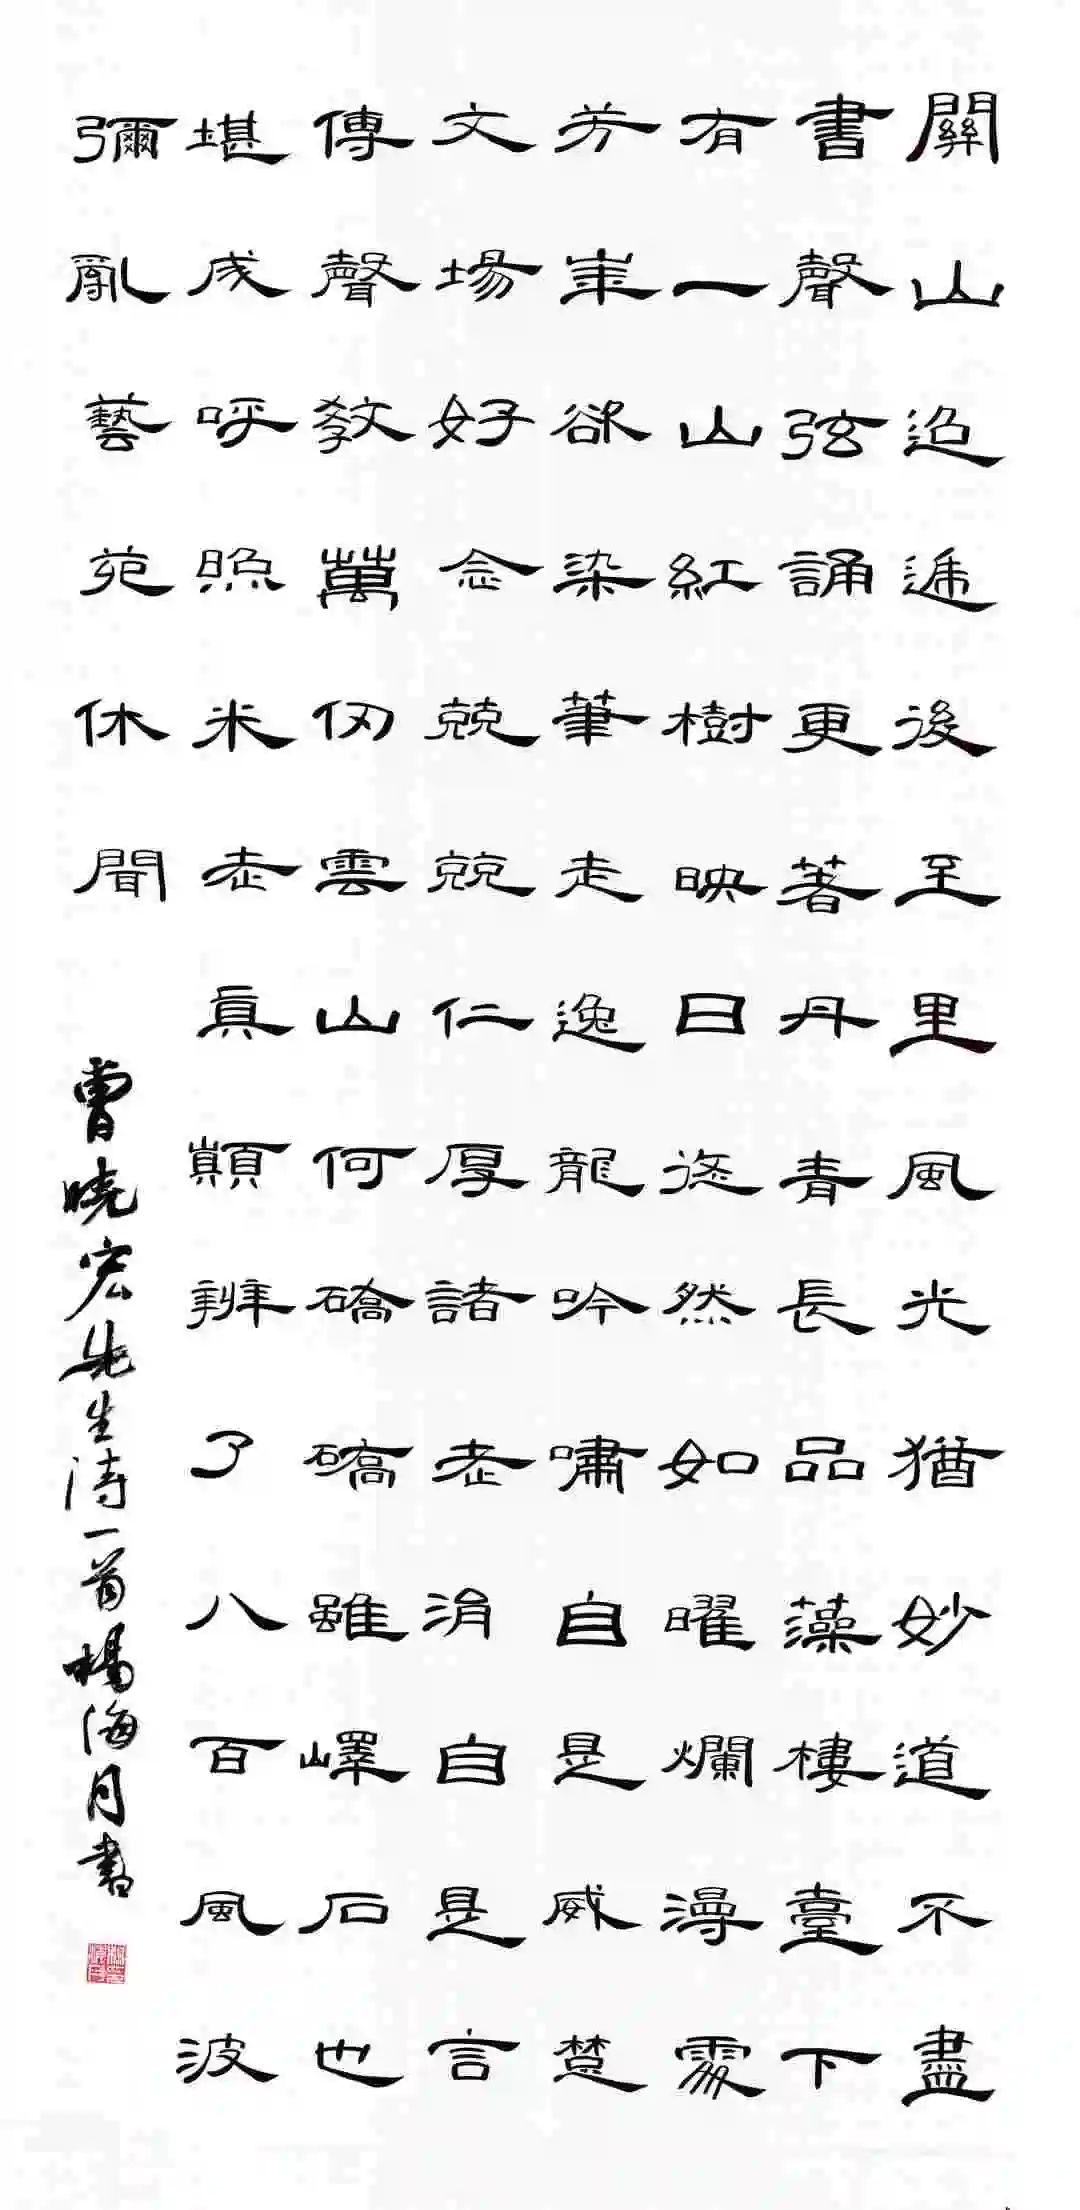 關山迢遞後至里風光猶妙道不盡
書聲弦誦更著丹青長品藻樓臺下
有一山紅樹映日然如曜爛漫
芳華欲染筆走逸龍吟嘯自是威楚
文場好念兢兢仁厚諸老涓自是言
傳聲教萬仞雲山何礄礄雖嶧石也
堪成呼照米老真顛辨了八百風波
彌亂藝苑休聞
曹曉宏先生诗一首楊海月書